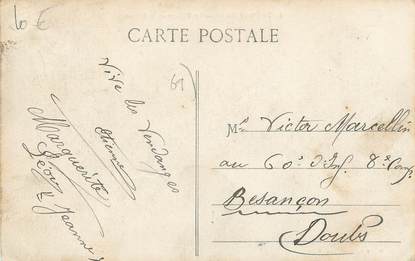 60 €
CARTE POSTALE
61
Vive les Vendanges
Etienne
Marguerite
Léon & Jeanne
Mr Victor Marcellin
au 60e d'Inf. 8e Comp.
Besançon
Doubs